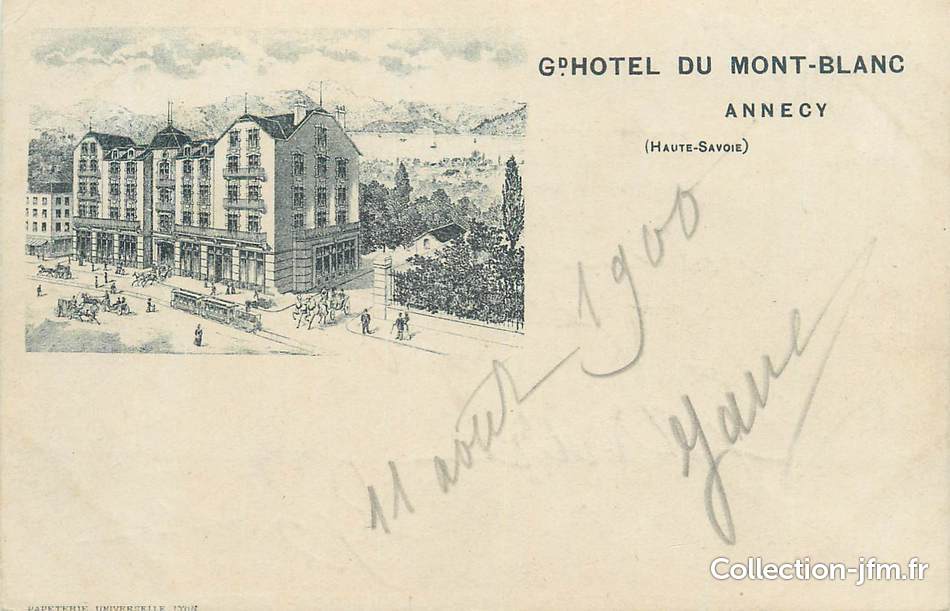 GD HOTEL DU MONT-BLANC
ANNECY
(HAUTE-SAVOIE)
11 août 1900
PAPETERIE UNIVERSELLE LYON
Collection-jfm.fr